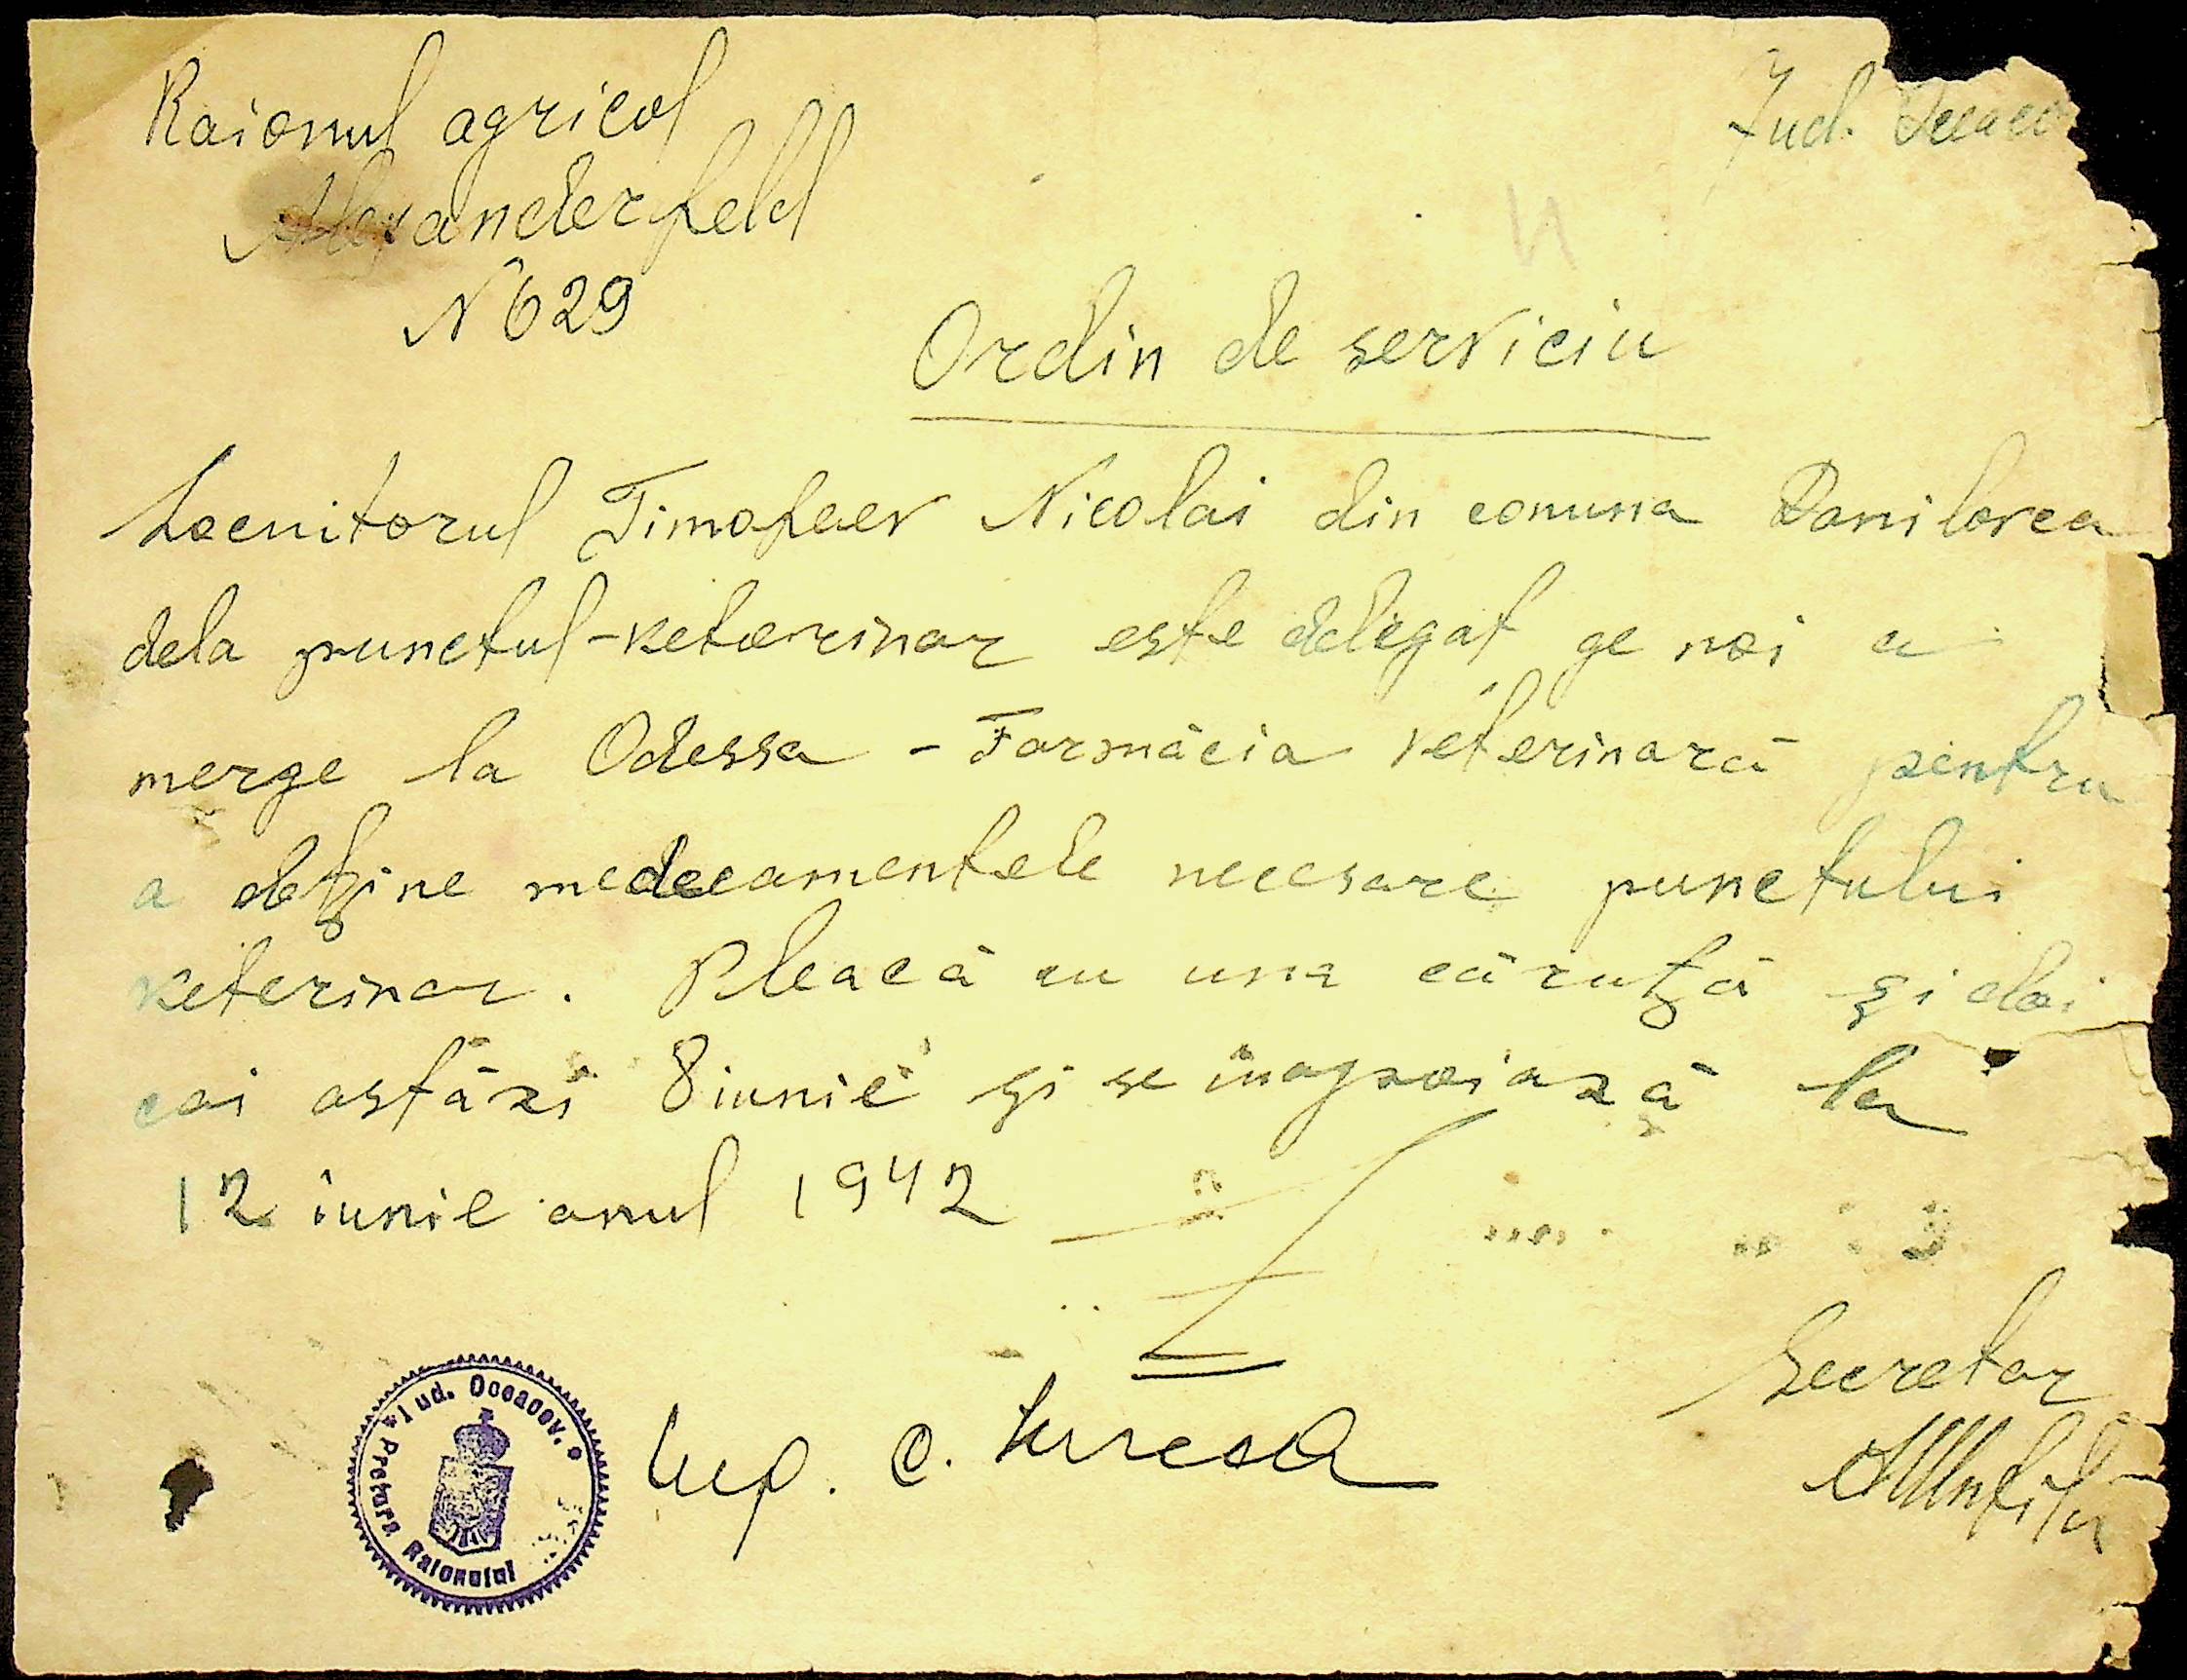 Raionul agricol
Alexanderfeld
Jud. Oceaco
N 629
Ordin de serviciu
Locuitorul Timofeev Nicolai din comuna Danilovca
dela punctul-veterinar este delegat ge noi a
merge la Odessa - Farmăcia veterinară pentru
a obține medecamentele necesare punctului
veterinar. Pleacă cu una căruță și doi
cai astăzi 8 iunie și se inapoiază la
12 iunie anul 1942
Secretar
* Jud. Oceacov. *
Pretura Raionului